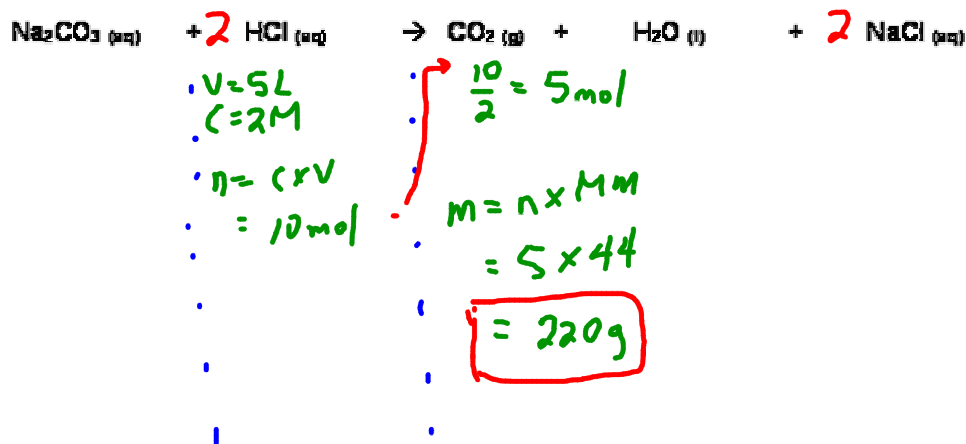 Na₂CO₃ (aq) + 2 HCl (aq) → CO₂ (g) + H₂O (l) + 2 NaCl (aq)
V=5L
C=2M
n= C×V
= 10mol
10/2 = 5mol
m = n × Mm
= 5 × 44
= 220g